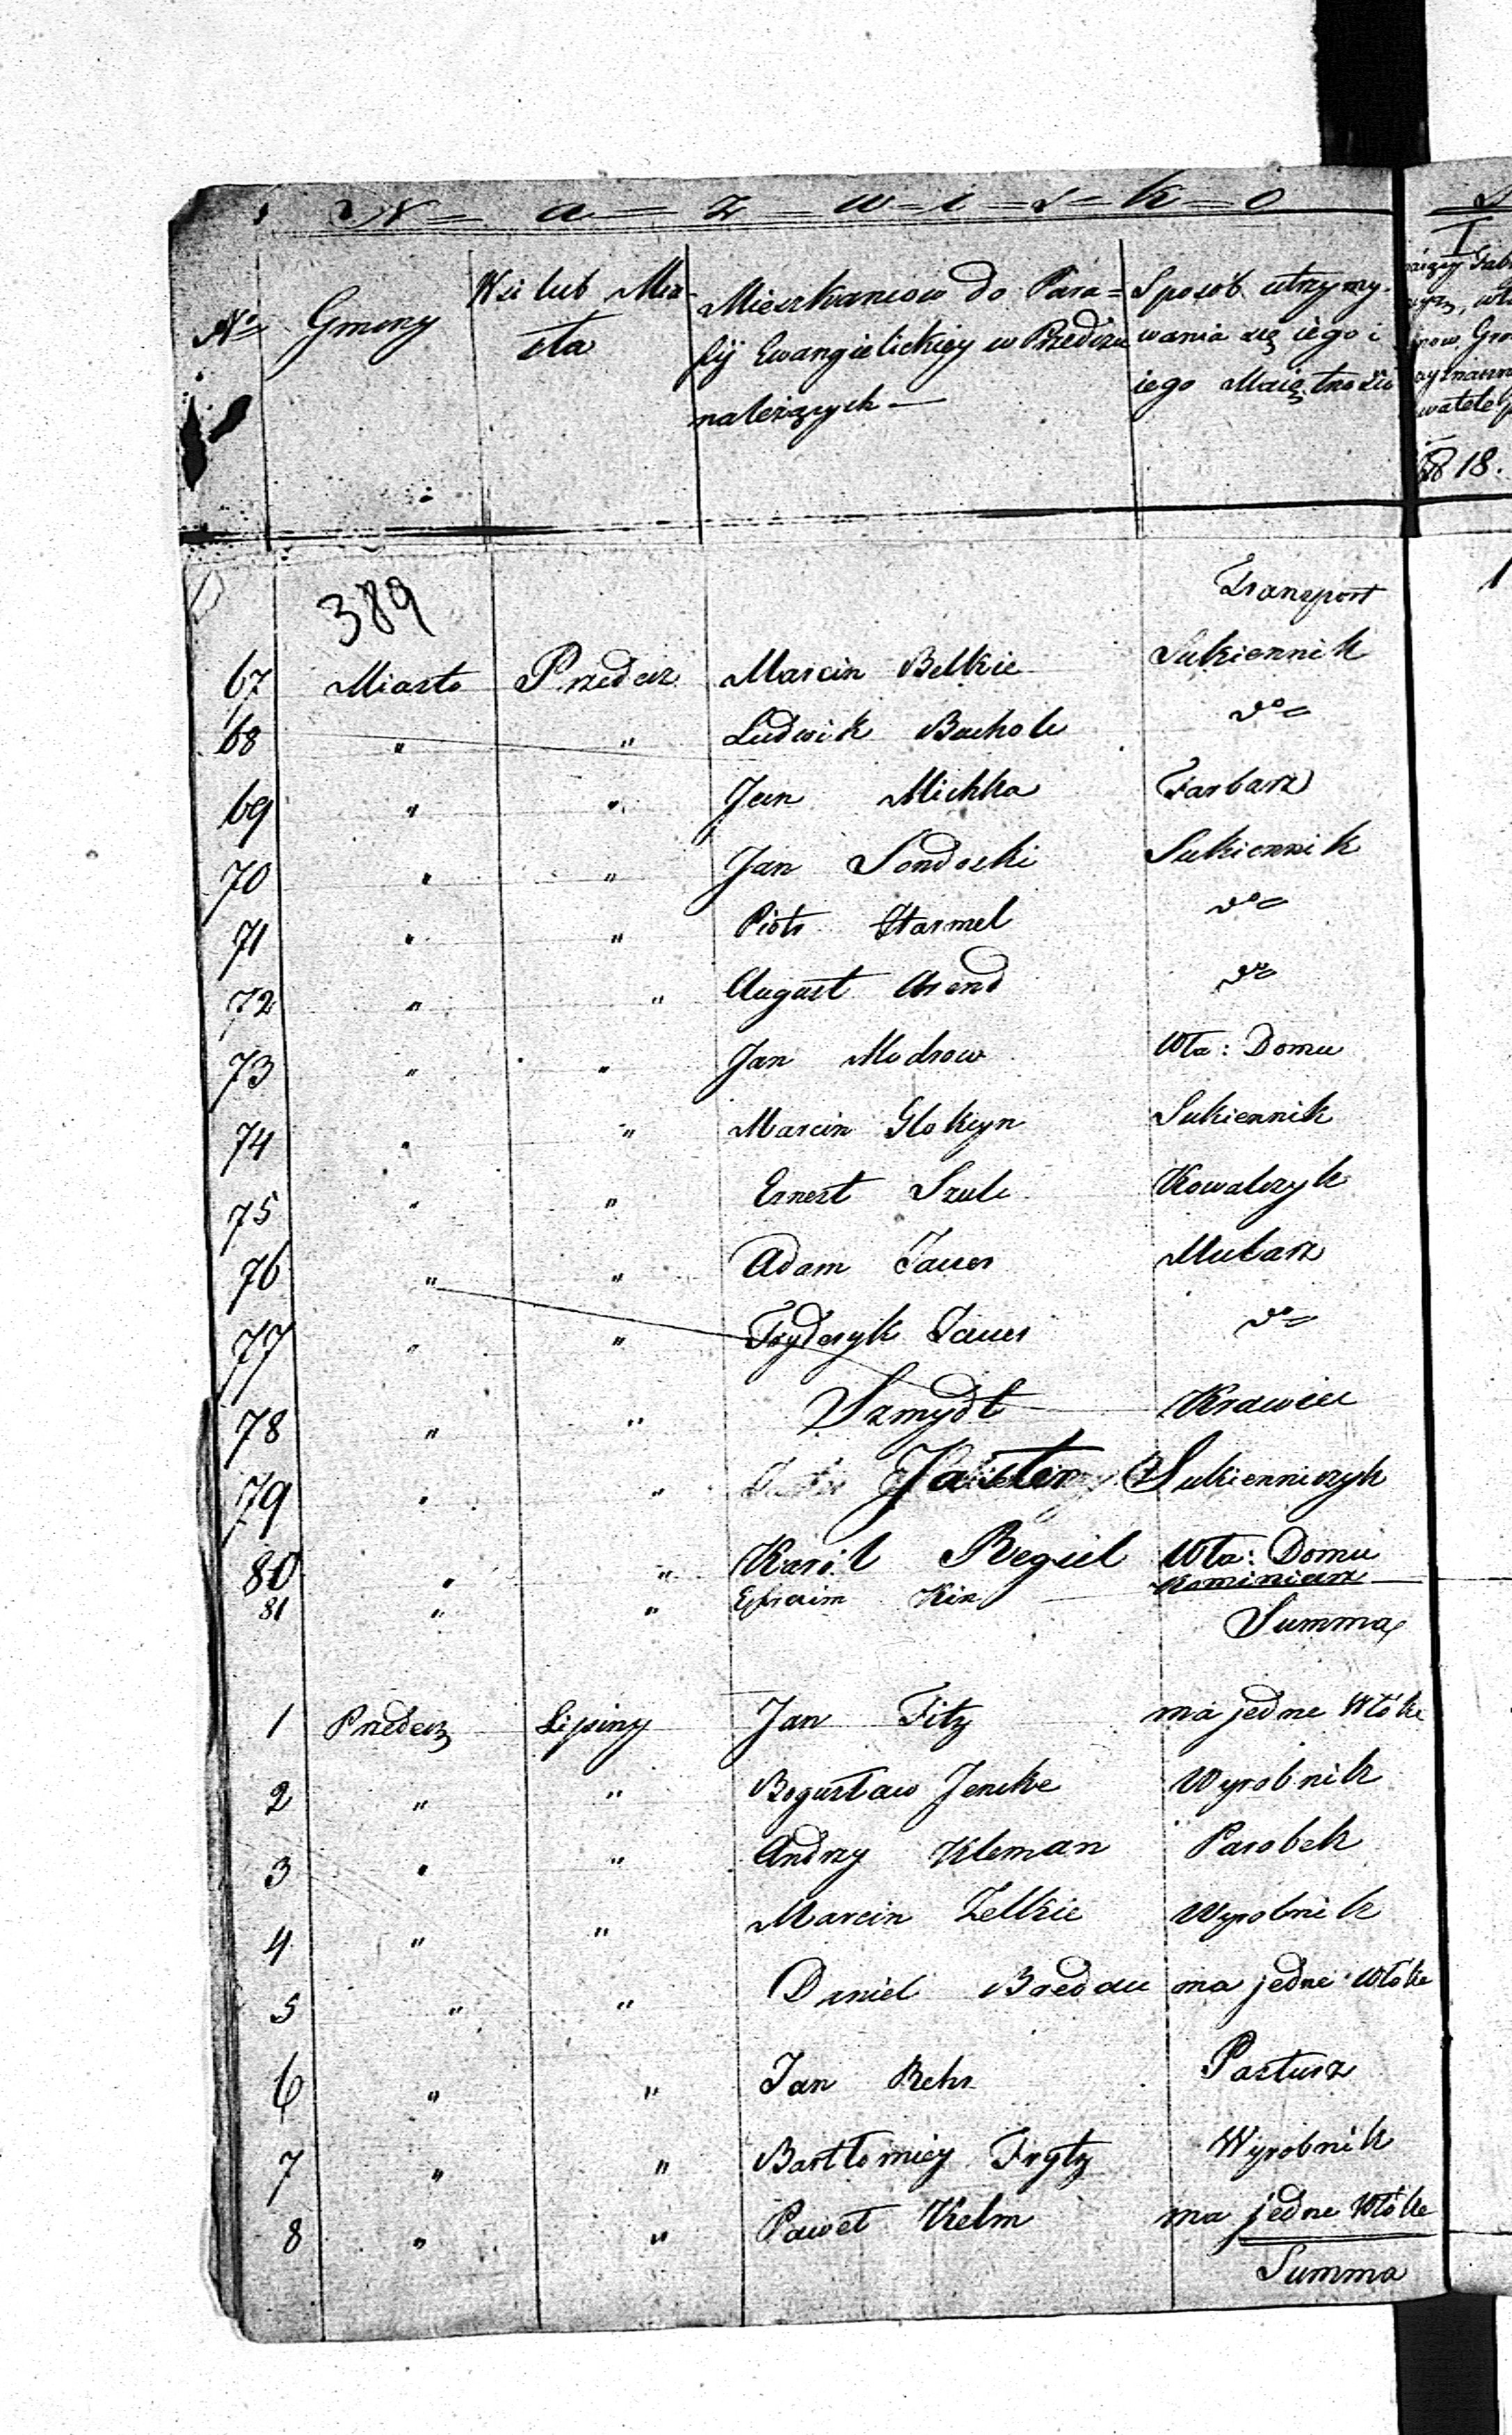 N = a = z = w = i = s = k = o
No Gminy Wsi lub Mia-
sta
Mieszkancow do Para=
fij Ewangielickiey w Przedczu
należących —
Sposob utrzymy-
wania się iego i
iego Maiętności
1818.
389 Transport
67 Miasto Przedecz Marcin Belkie Sukiennik
68 " " Ludwik Bucholc do=
69 " " Jan Michka Farbarz
70 " " Jan Sondoski Sukiennik
71 " " Piotr Harmel do=
72 " " August Arend do=
73 " " Jan Modrow Wła: Domu
74 " " Marcin Glokzyn Sukiennik
75 " " Ernest Szulc Kowalczyk
76 " " Adam Jauer Mularz
77 " " Fryderyk Jauer do=
78 " " Szmydt Krawiec
79 " " Sukienniczyk
80 " " Karol Regiel Wła: Domu
81 " " Efraim Kin Kominiarz
Summa
1 Przedecz Lipiny Jan Fitz ma jedne Włóke
2 " " Bogusław Jencke Wyrobnik
3 " " Andrzy Kleman Parobek
4 " " Marcin Zelkie Wyrobnik
5 " " Daniel Bredau ma jedne Włóke
6 " " Jan Behr Pasturz
7 " " Bartłomiey Frytz Wyrobnik
8 " " Paweł Kelm ma jedne Włóke
Summa